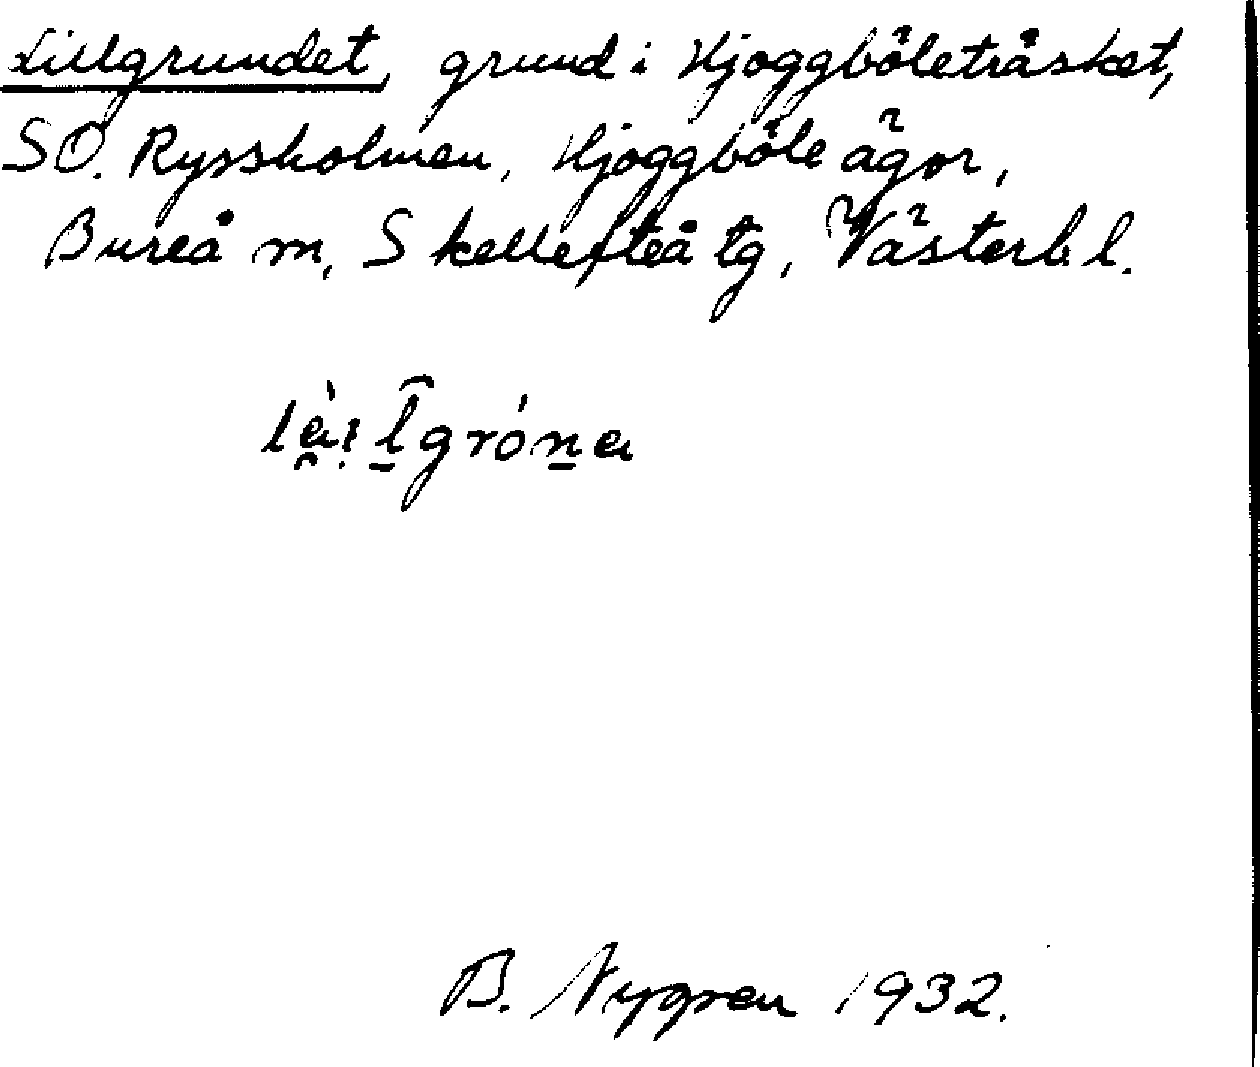 Lillgrundet, grund i Hjoggböleträsket,
SO. Ryssholmen, Hjoggböle ägor,
Bureå m, Skellefteå tg, Västerb l.
B. Nygren 1932.